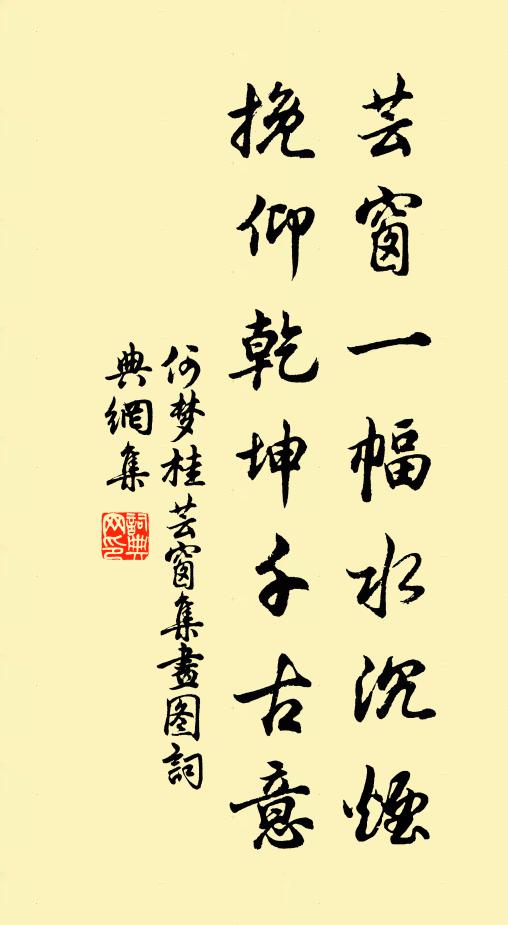 芸窗一幅水沉煙
挽仰乾坤千古意
何梦桂芸窗集畫图詞
典網集
詞典
网印